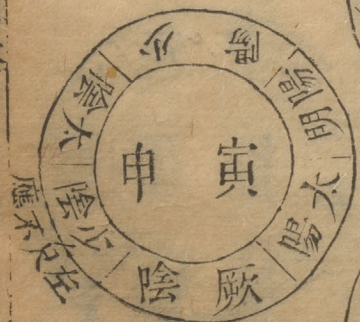 寅申
少陽
陽明
太陽
厥陰
少陰
太陰
左尺不應